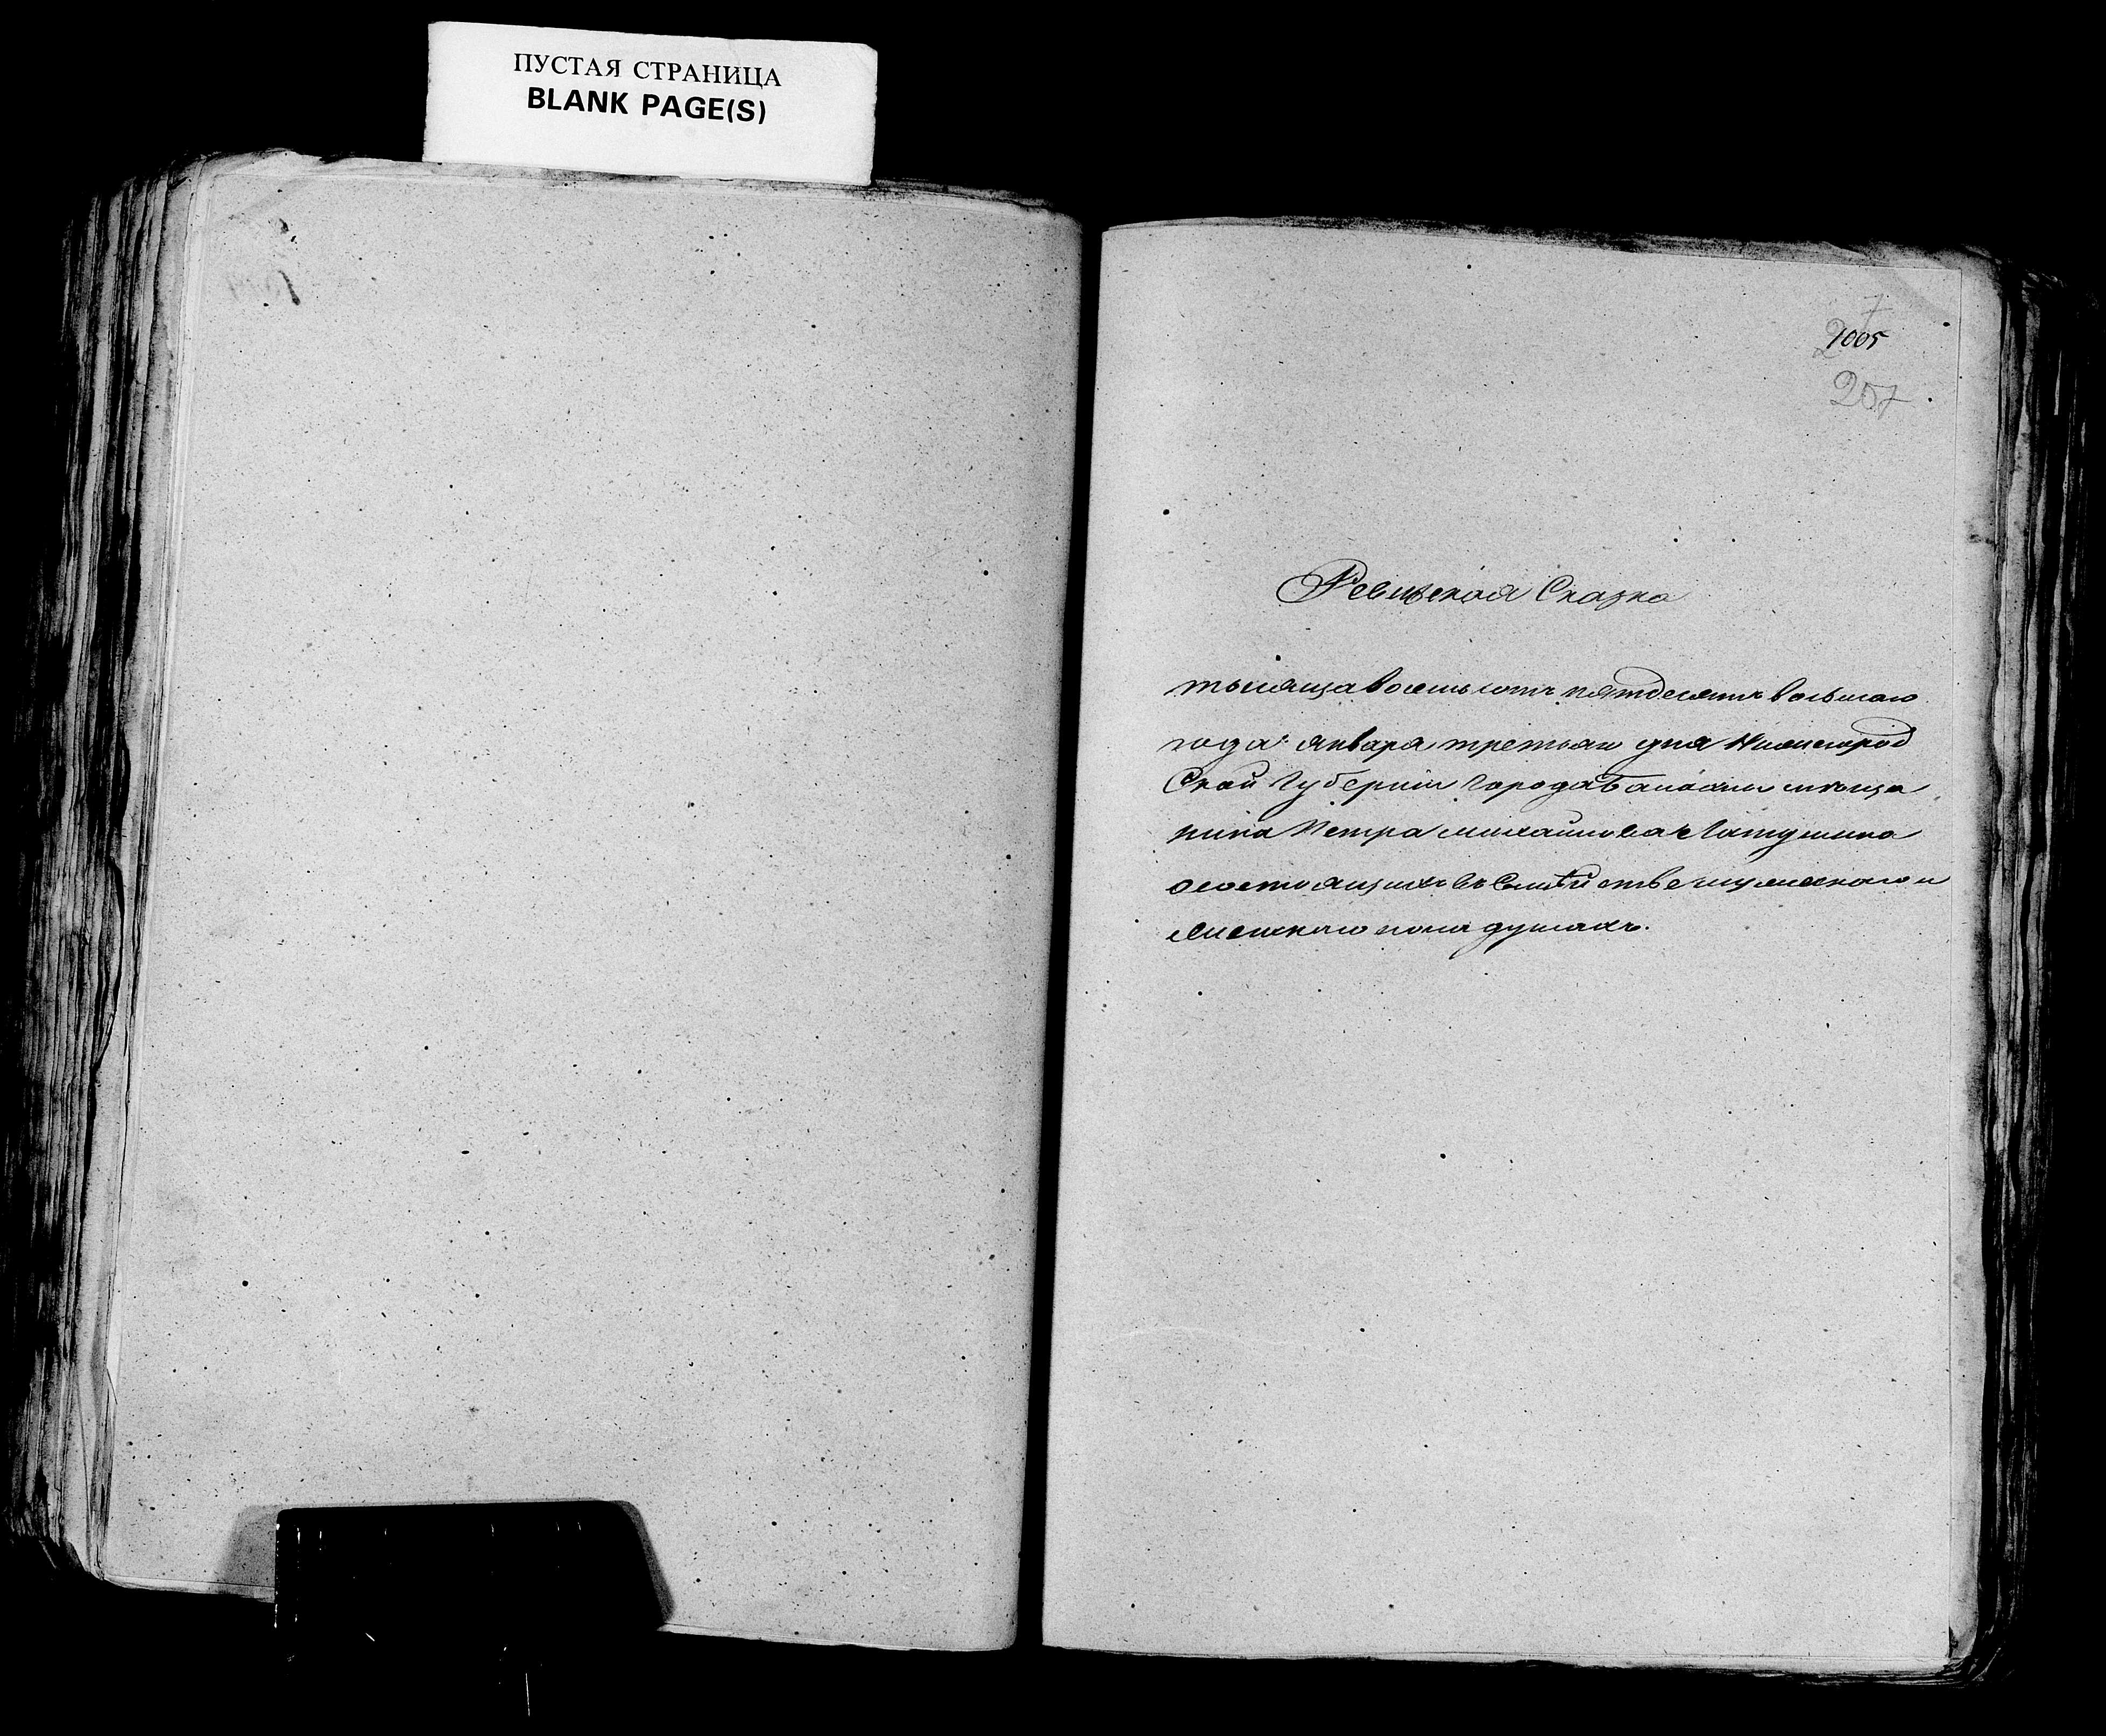 ПУСТАЯ СТРАНИЦА
BLANK PAGE(S)
1005
257
Ревизская Сказка
тысяща восемьсотъ пятдесятъ восьмаго
года января третьяго дня Нижегород
Ской Губернии города Балахны мѣща
нина Петра Михайлова Латушина
осостоящихъ въ Семѣйстве мужескаго и
женскаго пола душахъ.